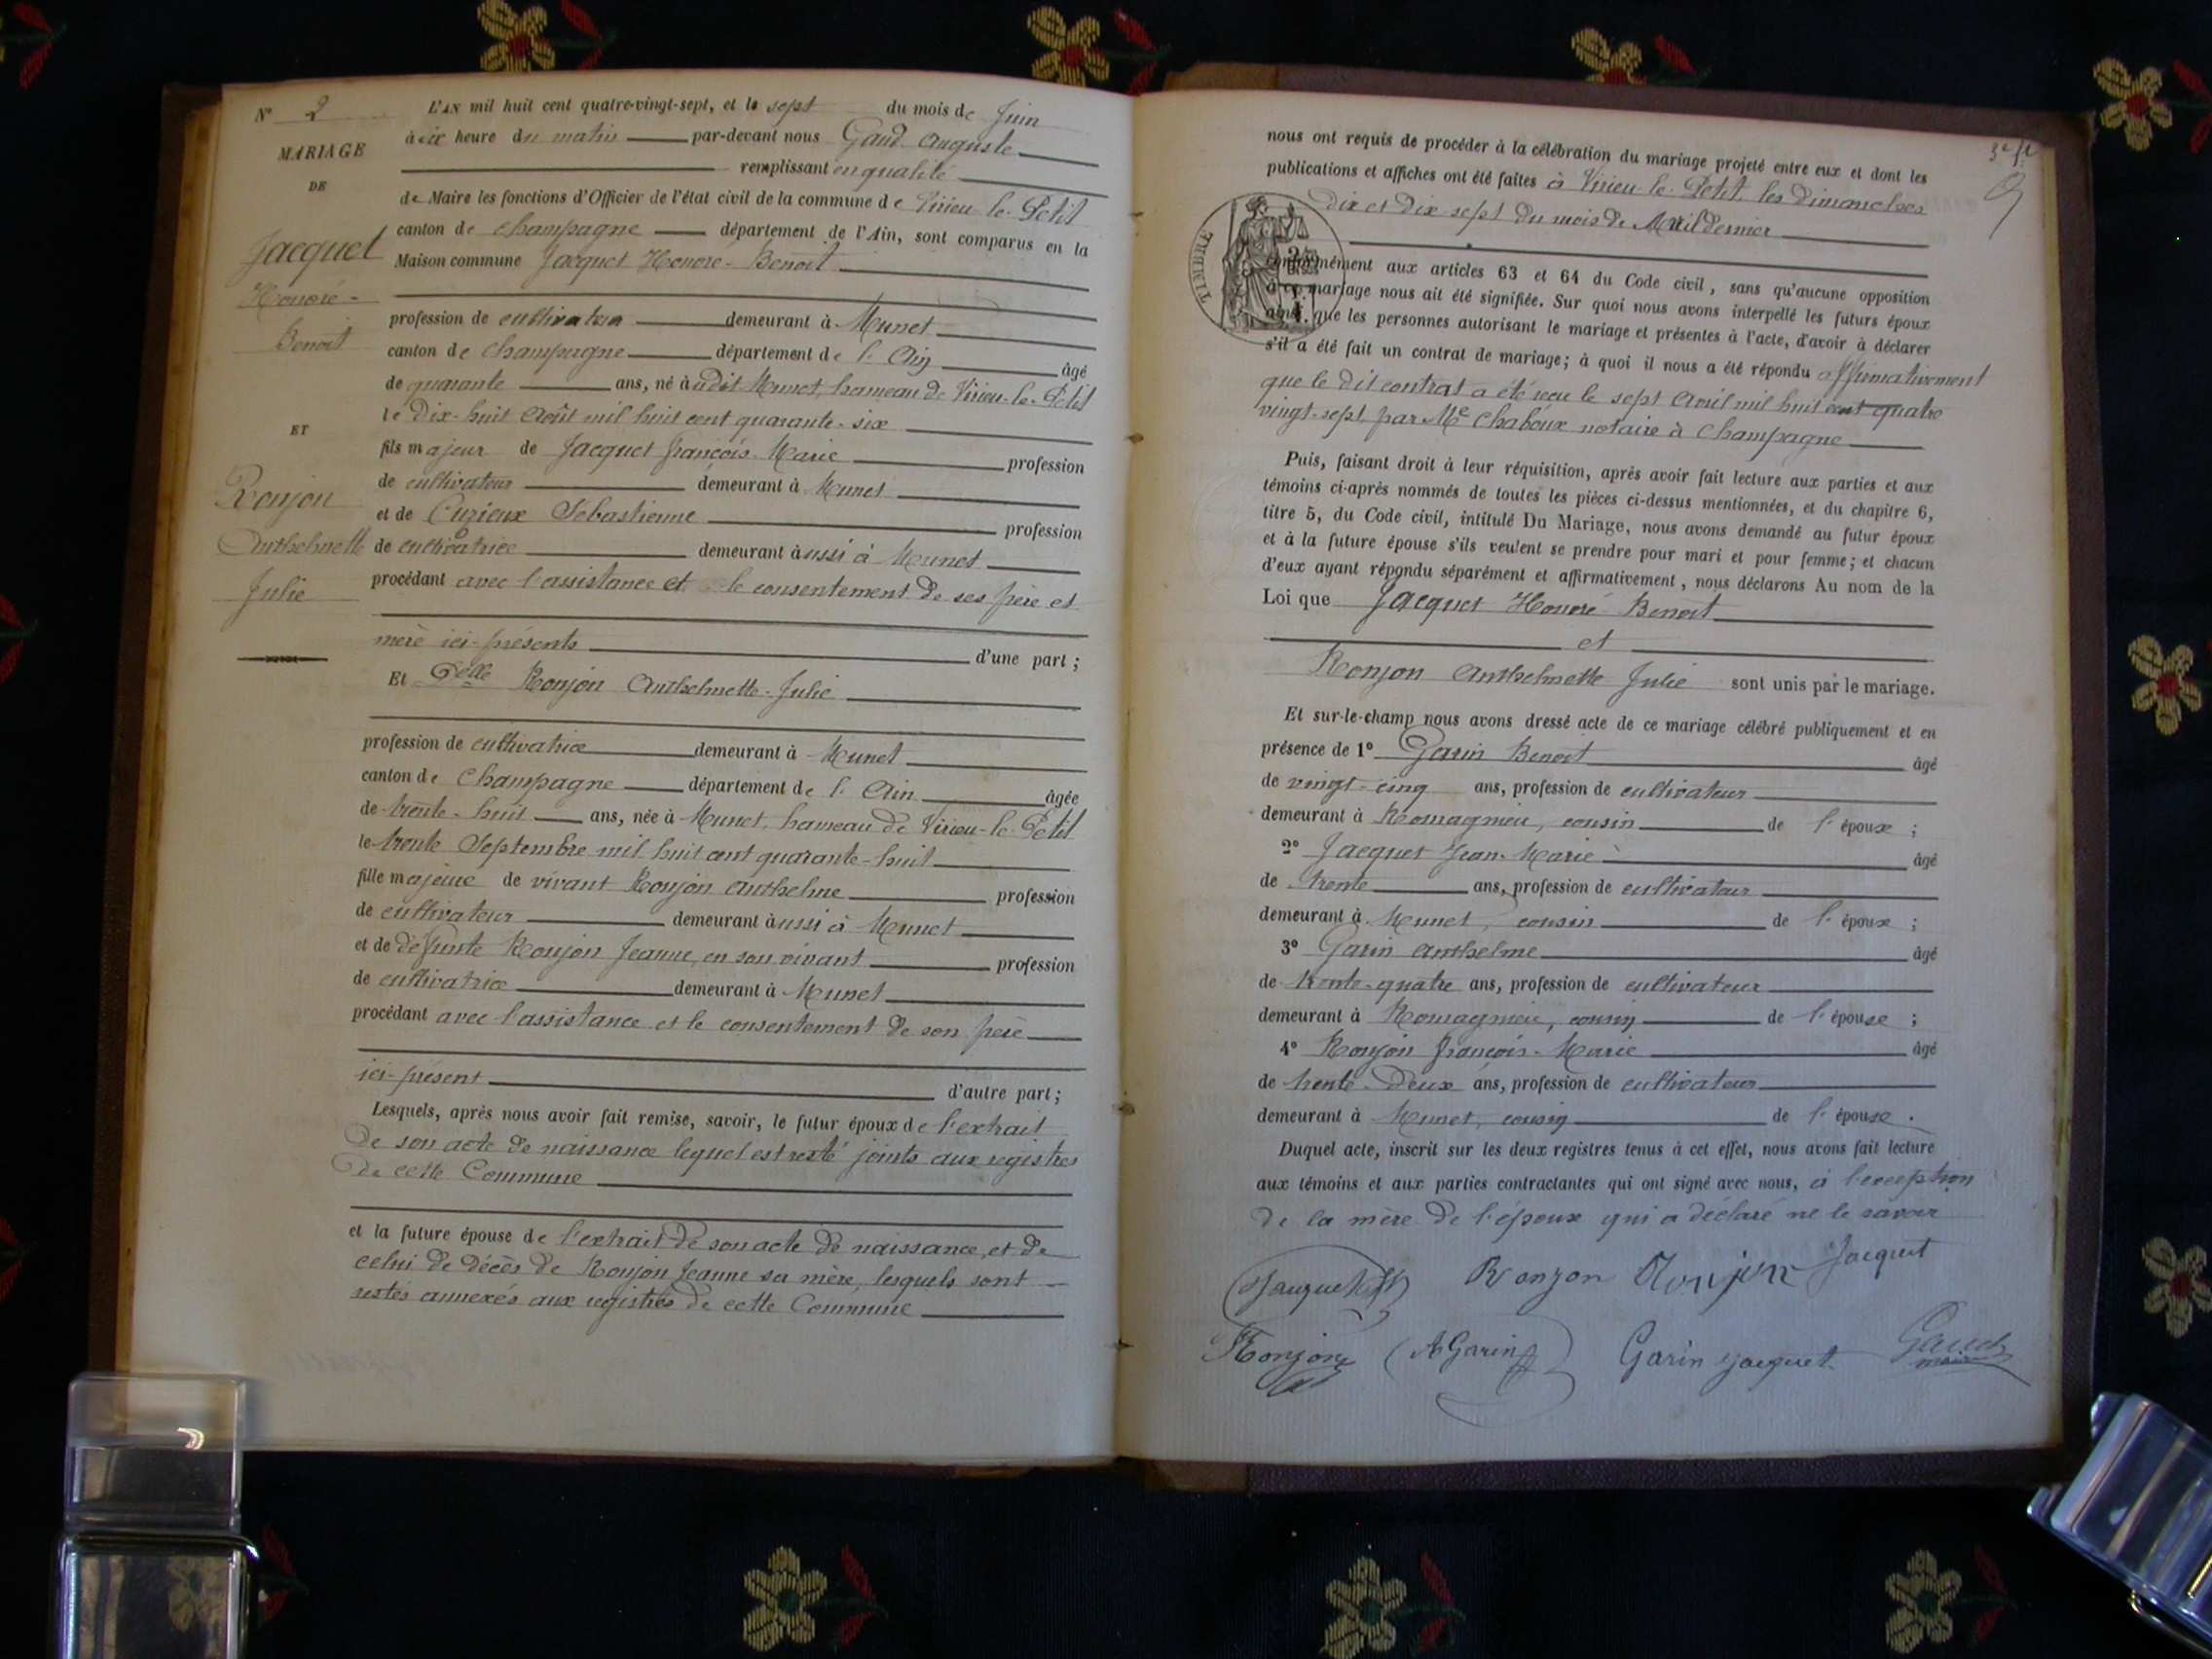 N° 2
MARIAGE
DE
Jacquet
Honoré-
Benoit
ET
Ronjon
Anthelmette
Julie
L'AN mil huit cent quatre-vingt-sept, et le sept du mois de Juin
à six heure du matin par-devant nous Gaud Auguste
remplissant en qualité
de Maire les fonctions d'Officier de l'état civil de la commune de Virieu-le-Petit
canton de Champagne département de l'Ain, sont comparus en la
Maison commune Jacquet Honoré-Benoit
profession de cultivateur demeurant à Munet
canton de Champagne département de l'Ain âgé
de quarante ans, né à udit Munet, hameau de Virieu-le-Petit
le Dix-huit Août mil huit cent quarante-six
fils majeur de Jacquet François-Marie profession
de cultivateur demeurant à Munet
et de Curieux Sébastienne profession
de cultivatrice demeurant àussi à Munet
procédant avec l'assistance et le consentement de ses père et
mère ici-présents d'une part ;
Et Delle Ronjon Anthelmette-Julie
profession de cultivatrice demeurant à Munet
canton de Champagne département de l'Ain âgée
de trente-huit ans, née à Munet, hameau de Virieu-le-Petit
le trente Septembre mil huit cent quarante-huit
fille majeure de vivant Ronjon Anthelme profession
de cultivateur demeurant àussi à Munet
et de défunte Ronjon Jeanne, en son vivant profession
de cultivatrice demeurant à Munet
procédant avec l'assistance et le consentement de son père
ici-présent d'autre part;
Lesquels, après nous avoir fait remise, savoir, le futur époux de l'extrait
de son acte de naissance lequel est resté joints aux registres
de cette Commune
et la future épouse de l'extrait de son acte de naissance, et de
celui de décès de Ronjon Jeanne sa mère, lesquels sont
restés annexés aux registres de cette Commune
nous ont requis de procéder à la célébration du mariage projeté entre eux et dont les
publications et affiches ont été faites à Virieu-le-Petit, les dimanches
dix et dix-sept du mois de Avril dernier
TIMBRE
conformément aux articles 63 et 64 du Code civil, sans qu'aucune opposition
à ce mariage nous ait été signifiée. Sur quoi nous avons interpellé les futurs époux
ainsi que les personnes autorisant le mariage et présentes à l'acte, d'avoir à déclarer
s'il a été fait un contrat de mariage; à quoi il nous a été répondu affirmativement
que le dit contrat a été reçu le sept Avril mil huit cent quatre
vingt-sept, par Me Chaboux notaire à Champagne
Puis, faisant droit à leur réquisition, après avoir fait lecture aux parties et aux
témoins ci-après nommés de toutes les pièces ci-dessus mentionnées, et du chapitre 6,
titre 5, du Code civil, intitulé Du Mariage, nous avons demandé au futur époux
et à la future épouse s'ils veulent se prendre pour mari et pour femme; et chacun
d'eux ayant répondu séparément et affirmativement, nous déclarons Au nom de la
Loi que Jacquet Honoré Benoit
et
Ronjon Anthelmette Julie sont unis par le mariage.
Et sur-le-champ nous avons dressé acte de ce mariage célébré publiquement et en
présence de 1° Garin Benoit âgé
de vingt-cinq ans, profession de cultivateur
demeurant à Romagnieu, cousin de l'époux ;
2° Jacquet Jean-Marie âgé
de trente ans, profession de cultivateur
demeurant à Munet, cousin de l'époux ;
3° Garin Anthelme âgé
de trente-quatre ans, profession de cultivateur
demeurant à Romagnieu, cousin de l'épouse ;
4° Ronjon François-Marie âgé
de trente-deux ans, profession de cultivateur
demeurant à Munet, cousin de l'épouse.
Duquel acte, inscrit sur les deux registres tenus à cet effet, nous avons fait lecture
aux témoins et aux parties contractantes qui ont signé avec nous, à l'exception
de la mère de l'époux qui a déclaré ne le savoir
Jacquet Ronjon Ronjon Jacquet
Ronjon A Garin Garin Jacquet Gaud
maire